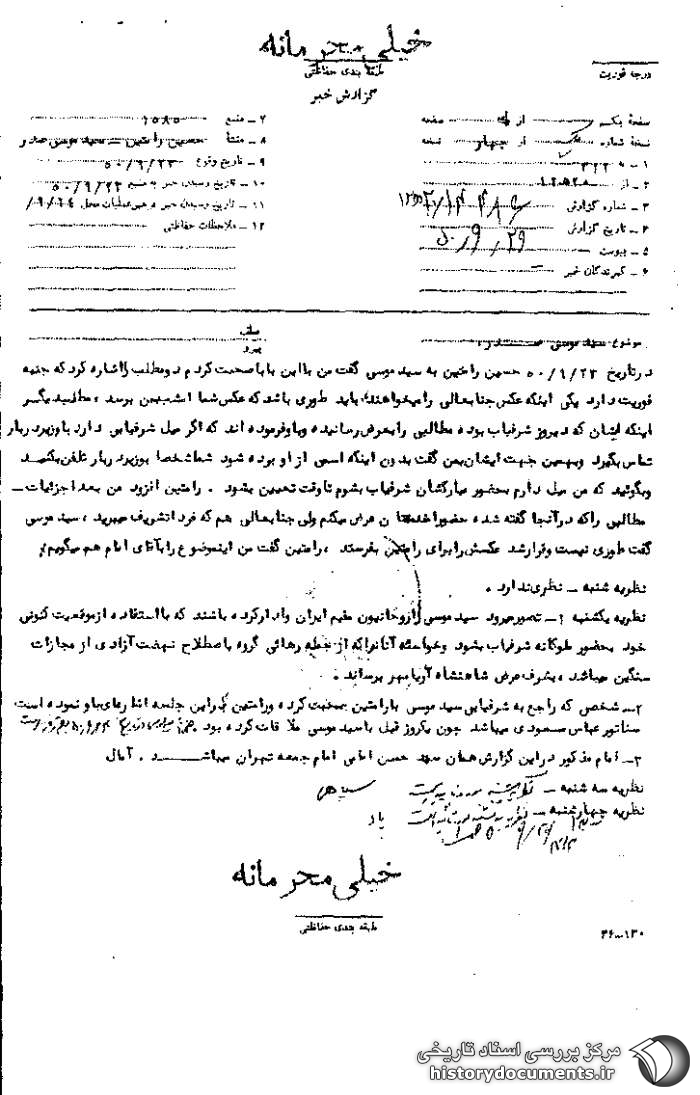 خیلی محرمانه
طبقه بندی حفاظتی
درجه فوریت
گزارش خبر
صفحه یک از صفحه
نسخه شماره از چهار نسخه
۱ ـ به ۳۲۲
۲ ـ از
۳ ـ شماره گزارش
۴ ـ تاریخ گزارش ۵۰/۹/۲۹
۵ ـ پیوست
۶ ـ گیرندگان خبر
۷ ـ منبع ۱۰۸۵
۸ ـ منشأ حسین رامتین ـ سید موسی صدر
۹ ـ تاریخ وقوع ۵۰/۹/۲۳
۱۰ ـ تاریخ رسیدن خبر به منبع ۵۰/۹/۲۳
۱۱ ـ تاریخ رسیدن خبر به رهبر عملیات محل
۱۲ ـ ملاحظات حفاظتی
موضوع سید موسی صدر
عطف
پیرو
درتاریخ ۵۰/۹/۲۳ حسین رامتین به سید موسی گفت من با این بابا صحبت کردم دو مطلب را اشاره کرد که جنبه
فوریت دارد یکی اینکه عکس جنابعالی را میخواهند باید طوری باشد که عکس شما امشب بمن برسد ، مطلب دیگر
اینکه ایشان که دیروز شرفیاب بوده مطالبی را بعرض رسانیده و باو فرموده اند که اگر میل شرفیابی دارد با وزیر دربار
تماس بگیرد و بهمین جهت ایشان بمن گفت بدون اینکه اسمی از او برده شود شما شخصا بوزیر دربار تلفن بکنید
وبگوئید که من میل دارم بحضور مبارکشان شرفیاب بشوم تا وقت تعیین بشود . رامتین افزود من بعد اجزئیات ـ
مطالبی راکه در آنجا گفته شده حضورا خدمتتان عرض میکنم ولی جنابعالی هم که فردا تشریف میبرید ، سید موسی
گفت طوری نیست و قرار شد عکسش را برای رامتین بفرستد ، رامتین گفت من اینموضوع را بآقای امام هم میگویم .
نظریه شنبه ـ نظری ندارد .
نظریه یکشنبه ۱ـ تصور میرود سید موسی را روحانیون مقیم ایران وادار کرده باشند که با استفاده از موقعیت کنونی
خود بحضور ملوکانه شرفیاب بشود وخواسته آنانرا که از جمله رهائی گروه باصطلاح نهضت آزادی از مجازات
سنگین میباشد ، بشرف عرض شاهنشاه آریامهر برساند .
۲ـ شخصی که راجع به شرفیابی سید موسی با رامتین صحبت کرده و رامتین در این جلسه اشاره‌ای باو نموده است
سناتور عباس مسعودی میباشد چون یکروز قبل با سید موسی ملاقات کرده بود .
۳ـ امام مذکور در این گزارش همان سید حسن امامی امام جمعه تهران میباشد . آمال
نظریه سه شنبه ـ نظریه یکشنبه مورد تأیید است
نظریه چهارشنبه ـ نظریه سه شنبه مورد تأیید است
خیلی محرمانه
طبقه بندی حفاظتی
۳۶-۱۳۰
مرکز بررسی اسناد تاریخی
historydocuments.ir